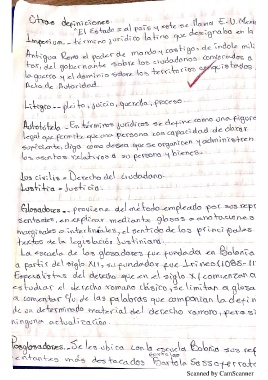 Otras definiciones
"El Estado = al país y este se llama E.U. Mexi
Imperium.- término jurídico latino que designaba en la
Antigua Roma el poder de mando y castigo, de índole mili
tar, del gobernante sobre los ciudadanos convocados a
la guerra y el dominio sobre los territorios conquistados.
Acto de Autoridad.
Litigio.- pleito, juicio, querella, proceso
Autotutela.- En términos jurídicos se define como una figura
legal que permite que una persona con capacidad de obrar
suficiente, diga como desea que se organicen y administren
los asuntos relativos a su persona y bienes.
Ius civilis = Derecho del ciudadano.
Iustitia = Justicia.
Glosadores.- proviene del método empleado por sus repr
sentantes, en explicar mediante glosas o anotaciones
marginales o interlineales, el sentido de los principales
textos de la legislación Justiniana.
La escuela de los glosadores fue fundada en Bolonia
a partir del siglo XII, su fundador fue Irineo (1085-11
Especialistas del derecho que en el siglo X (comienzan a
estudiar el derecho romano clásico, se limitan a glosa
a comentar c/u de las palabras que componían la defin
de un determinado material del derecho romano, pero si
ninguna actualización.
Posglosadores.- Se les ubica con la escuela Bolonia sus rep
entantes más destacados Bartolo Sassoferrato
Scanned by CamScanner